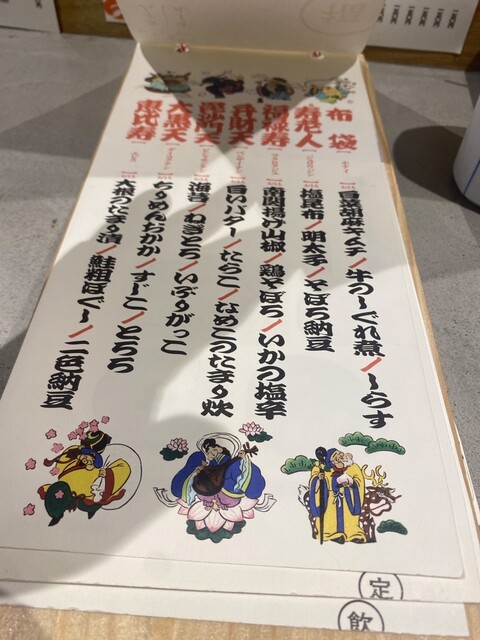 布袋 ホテイ 白菜胡麻キムチ/牛のしぐれ煮/しらす
寿老人 塩昆布/明太子/そぼろ納豆
福禄寿 有馬揚げ山椒/鶏そぼろ/いかの塩辛
弁財天 白いバター/たらこ/なめこのたまり炊
毘沙門天 海苔/わさとろ/いぶりがっこ
大黒天 ちりめんおかか/すじこ/とろろ
恵比寿 大根のたまり漬/鮭粗ほぐし/二色納豆
定
飲